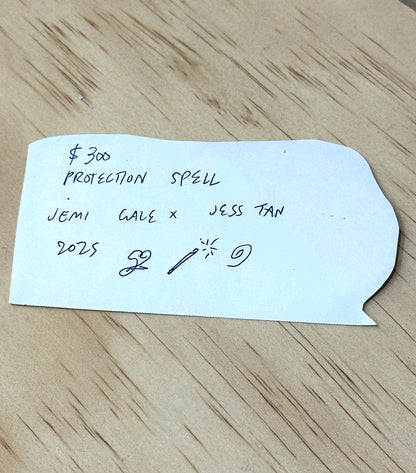 $300
PROTECTION SPELL
JEMI GALE x JESS TAN
2025